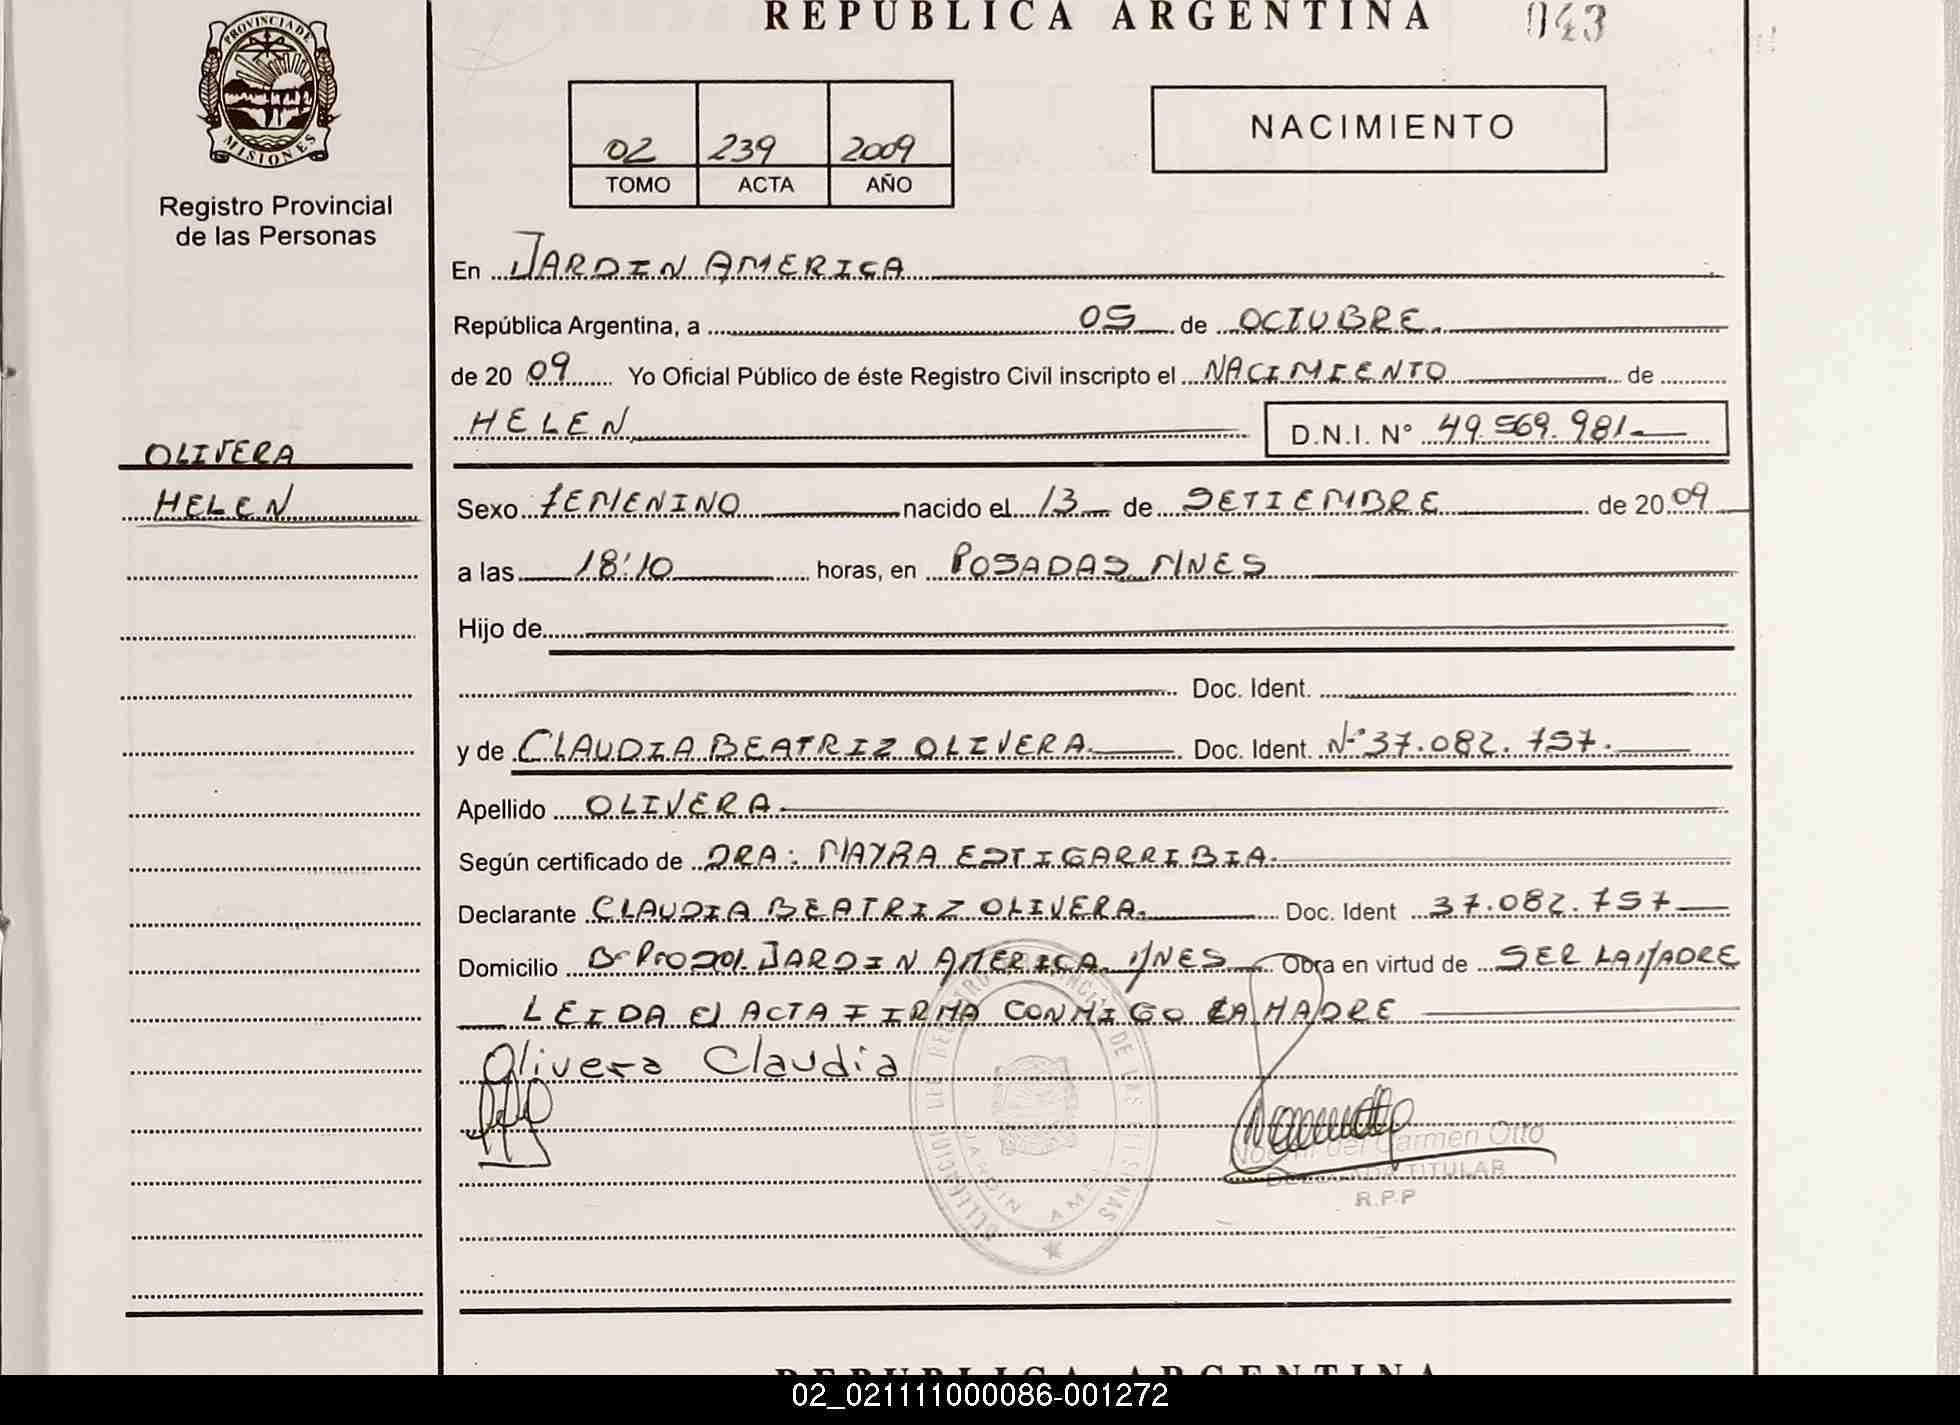 REPUBLICA ARGENTINA 043
PROVINCIA DE MISIONES
Registro Provincial
de las Personas
02 239 2009
TOMO ACTA AÑO
NACIMIENTO
En JARDIN AMERICA
República Argentina, a 05 de OCTUBRE.
de 20 09 Yo Oficial Público de éste Registro Civil inscripto el NACIMIENTO de
HELEN D.N.I. N° 49.569.981
OLIVERA
HELEN
Sexo FEMENINO nacido el 13 de SETIEMBRE de 20 09
a las 18:10 horas, en POSADAS MNES
Hijo de
Doc. Ident.
y de CLAUDIA BEATRIZ OLIVERA Doc. Ident. N° 37.082.757.
Apellido OLIVERA
Según certificado de DRA: MAYRA ESTIGARRIBIA.
Declarante CLAUDIA BEATRIZ OLIVERA. Doc. Ident 37.082.757
Domicilio JARDIN AMERICA MNES Obra en virtud de SER LA MADRE
LEIDA EL ACTA FIRMA CONMIGO LA MADRE
Olivera Claudia
DELEGACION DEL REGISTRO PROVINCIAL DE LAS PERSONAS
JARDIN AMERICA
del Carmen Otto
DELEGADA TITULAR
R.P.P
REPUBLICA ARGENTINA
02_021111000086-001272